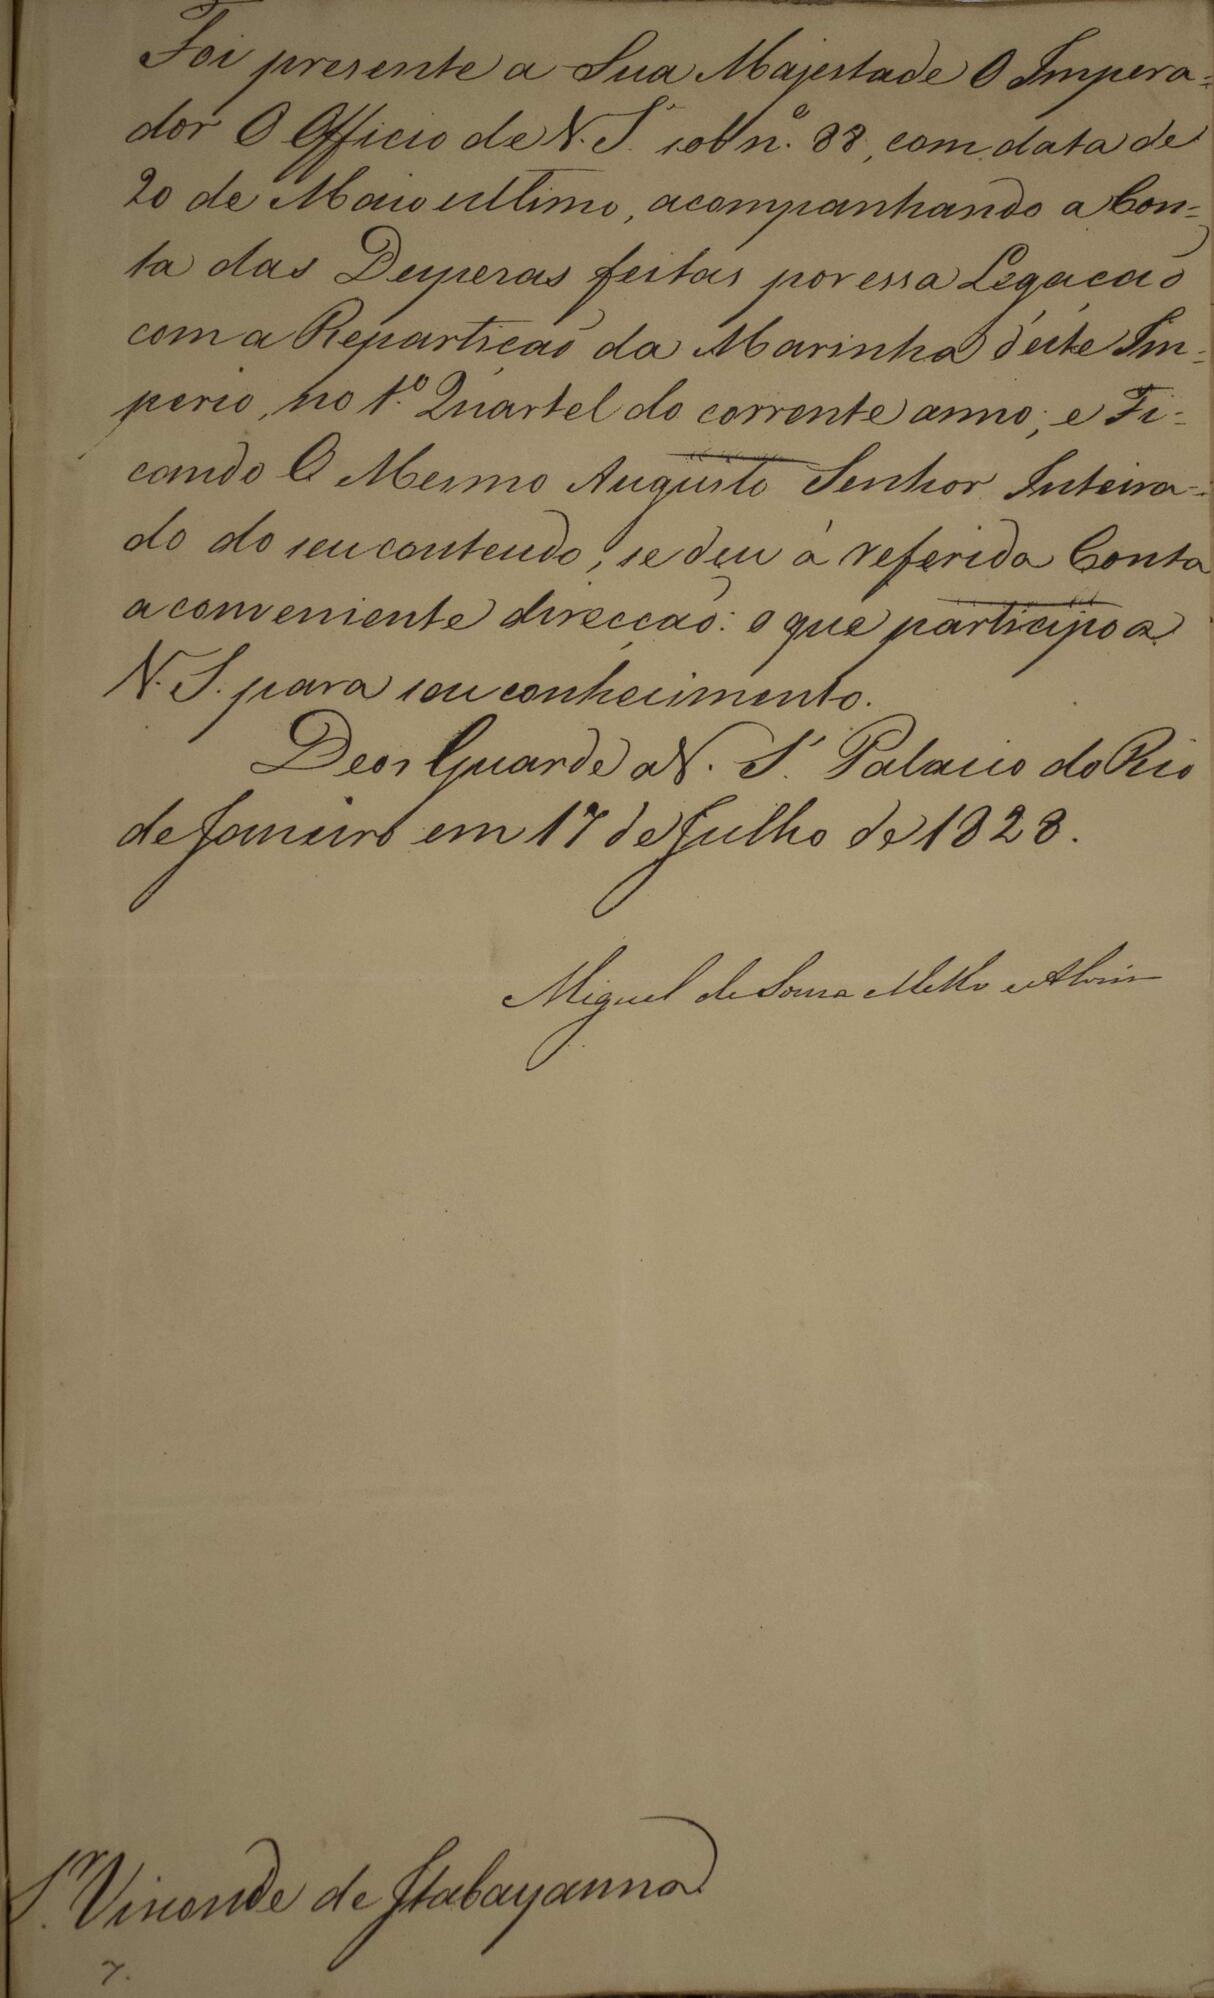 Foi presente a Sua Majestade O Impera-
dor O Officio de V. S. sob n.º 88, com data de
20 de Maio ultimo, acompanhando a Con-
ta das Despezas feitas por essa Legação
com a Repartição da Marinha d'este Im-
perio, no 1.º Quartel do corrente anno; e Fi-
cando O Mesmo Augusto Senhor Inteira-
do do seu conteudo, se deu á referida Conta
a conveniente direcção: o que participo a
V. S. para seu conhecimento.
Deos Guarde a V. S. Palacio do Rio
de Janeiro em 17 de Julho de 1828.
Miguel de Souza Mello e Alvim
Sr. Visconde de Itabayanna